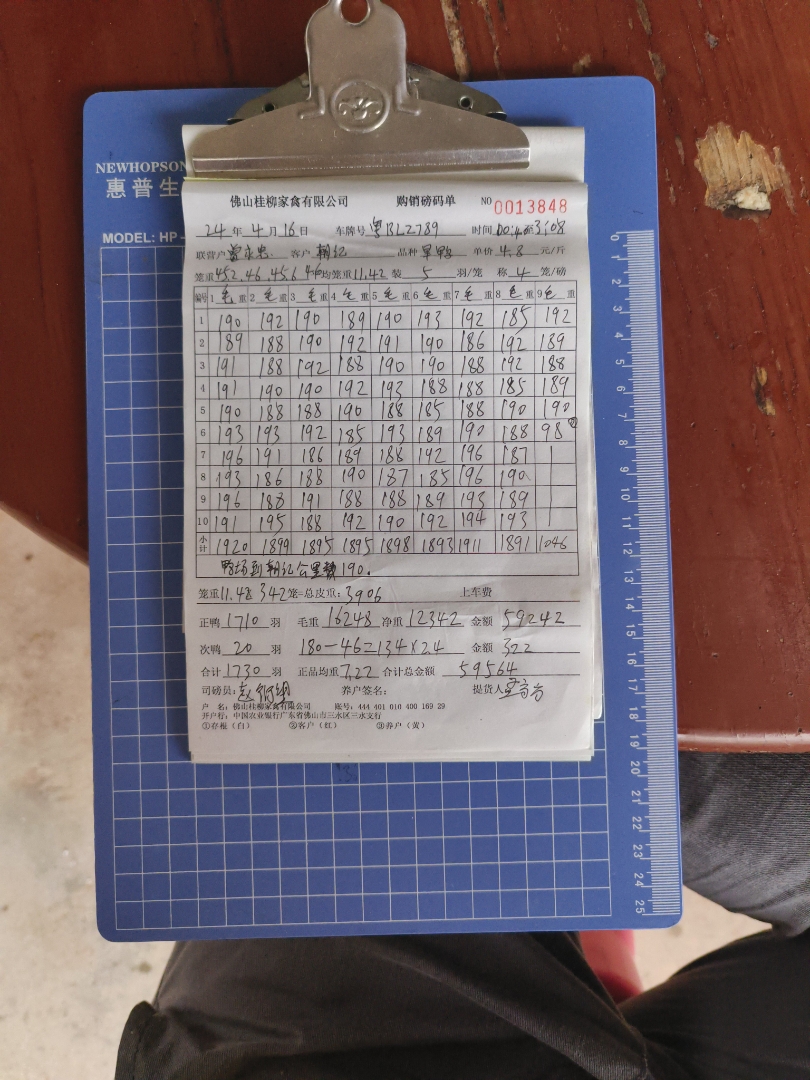 NEWHOPSON
惠普生
MODEL: HP-
佛山桂柳家禽有限公司 购销磅码单 NO 0013848
24 年 4 月 16 日 车牌号 粤BLZ789 时间 00:40至3:08
联营户 客户 朝纪 品种 单价 4.8 元/斤
笼重 45.2.46.45.6 46 均笼重 11.42 装 5 羽/笼 称 4 笼/磅
编号 1 毛 重 2 毛 重 3 毛 重 4 毛 重 5 毛 重 6 毛 重 7 毛 重 8 毛 重 9 毛 重
1 190 192 190 189 190 193 192 185 192
2 189 188 190 192 191 190 186 192 189
3 191 188 192 188 190 190 188 192 188
4 191 190 190 192 193 188 188 185 189
5 190 188 188 190 188 185 188 190 190
6 193 193 192 185 193 189 190 188 98
7 196 191 186 189 188 192 196 187
8 193 186 188 190 187 185 196 190
9 196 188 191 188 188 189 193 189
10 191 195 188 192 190 192 194 193
小计 1920 1899 1895 1895 1898 1893 1911 1891 1046
鸭场到朝纪公里数190.
笼重 11.48 342 笼=总皮重: 3906 上车费
正鸭 1710 羽 毛重 16248 净重 12342 金额 59242
次鸭 20 羽 180-46=134×2.4 金额 322
合计 1730 羽 正品均重 7.22 合计总金额 59564
司磅员: 养户签名: 提货人
户 名: 佛山桂柳家禽有限公司 账号: 444 401 010 400 169 29
开户行: 中国农业银行广东省佛山市三水区三水支行
①存根(白) ②客户(红) ③养户(黄)
0 1 2 3 4 5 6 7 8 9 10 11 12 13 14 15 16 17 18 19 20 21 22 23 24 25